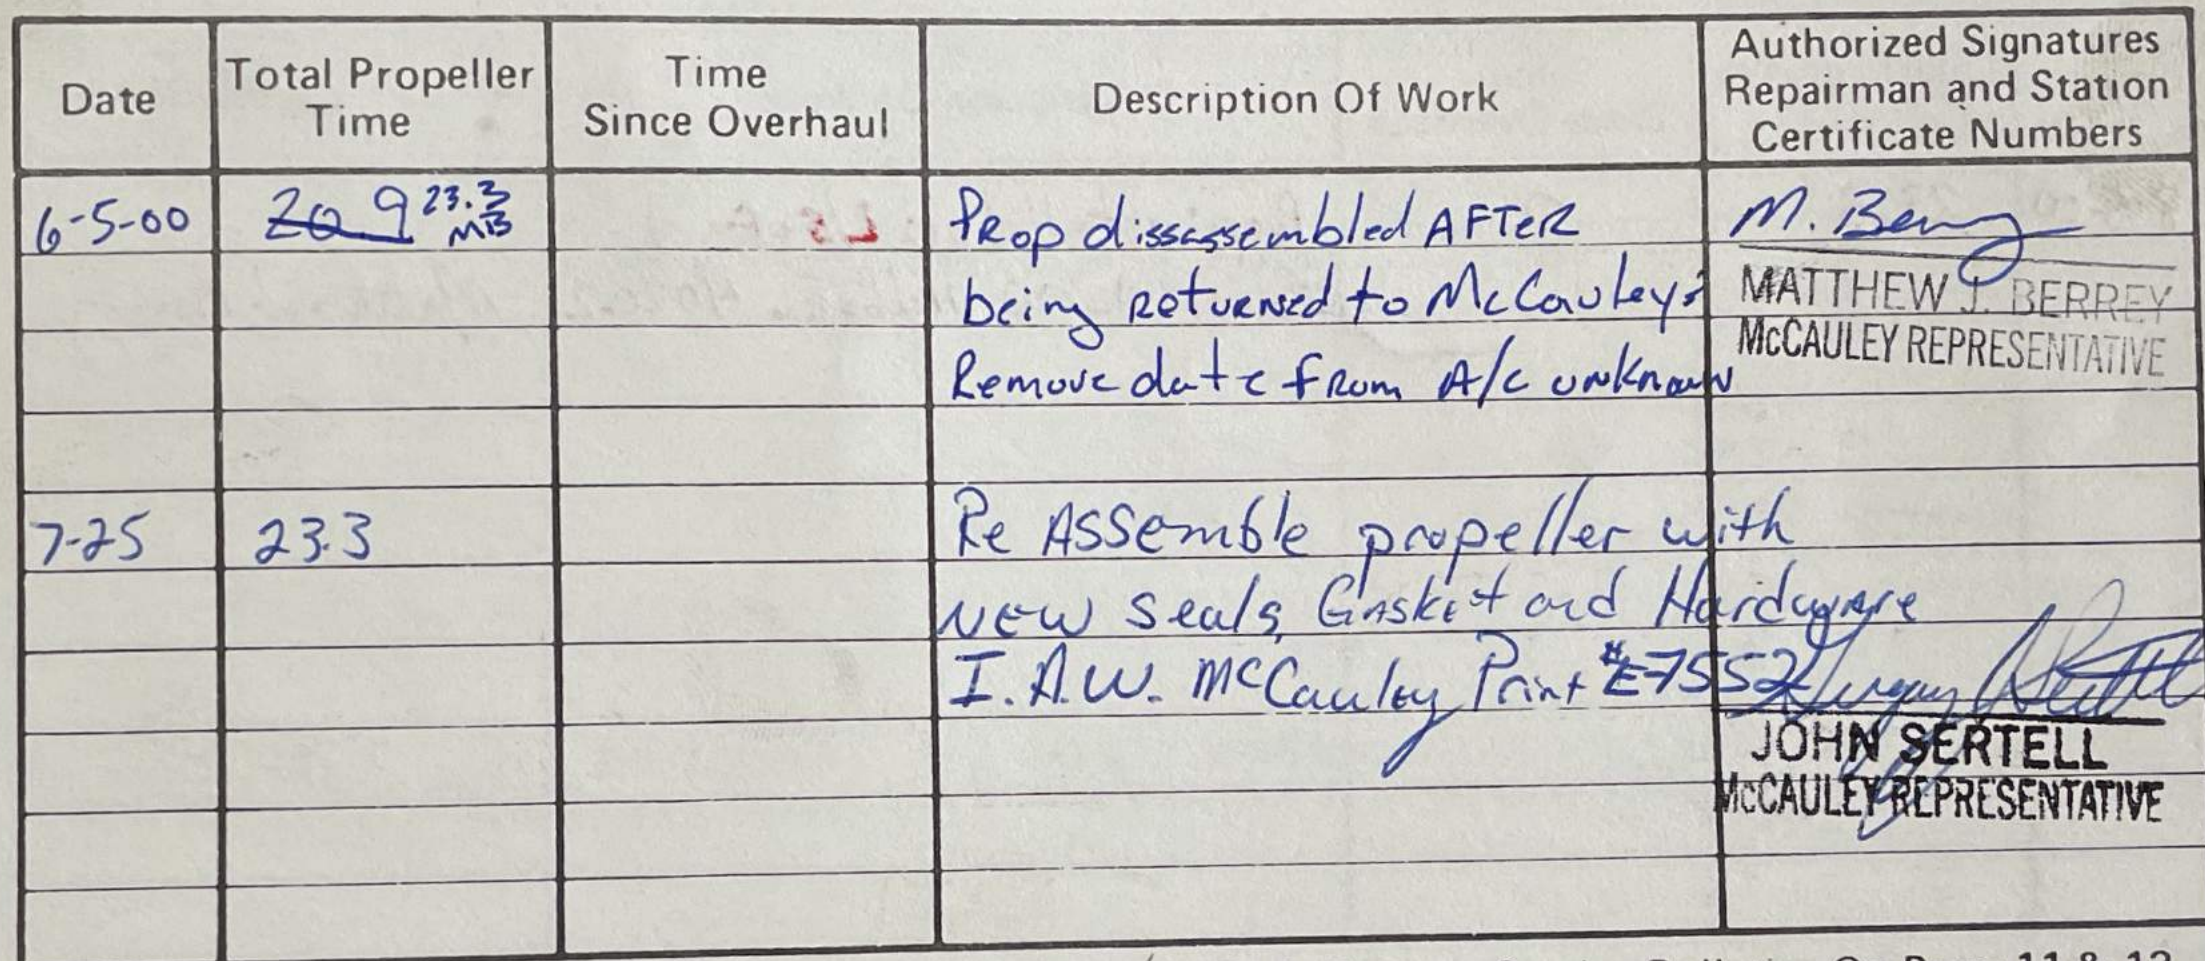 Date
Total Propeller Time
Time Since Overhaul
Description Of Work
Authorized Signatures Repairman and Station Certificate Numbers
6-5-00 20 9 23.3 MB Prop dissassembled AFTER M. Berrey
being returned to McCauley MATTHEW J. BERREY
Remove date from A/c unknown McCAULEY REPRESENTATIVE
7-25 23.3 Re ASSemble propeller with
NEW seals, Gasket and Hardware
I.A.W. McCauley Print #E-7552
JOHN SERTELL
McCAULEY REPRESENTATIVE
On Page 11 & 12